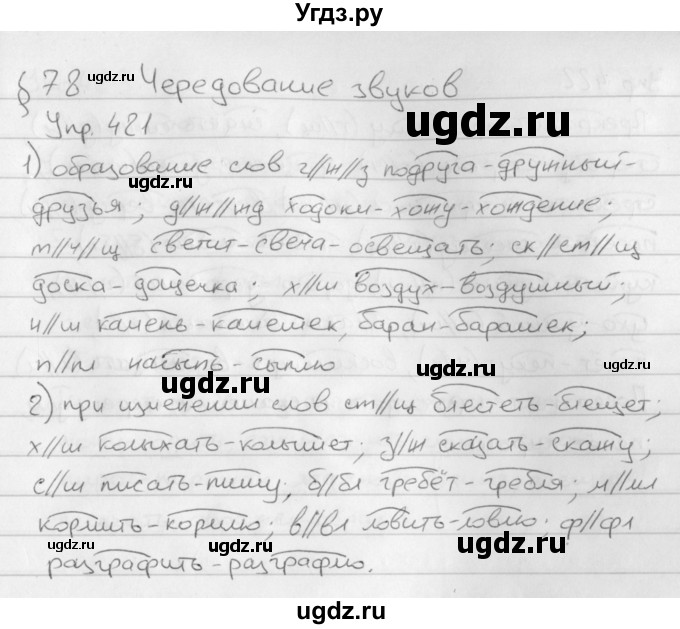 Угдз.ру
§ 78 Чередование звуков
угдз.ru
ugdz.ru
Упр. 421
1) образование слов г//ж//з подруга-дружный-
ugdz.ru
друзья; д//ж//жд ходоки-хожу-хождение;
т//ч//щ светит-свеча-освещать; ск//ст//щ
доска-дощечка; х//ш воздух-воздушный;
ugdz.ru
н//ш камень-камешек, баран-барашек;
п//пл насыпь-сыплю
ugdz.ru
2) при изменении слов ст//щ блестеть-блещет;
х//ш колыхать-колышет; з//ж сказать-скажу;
с//ш писать-пишу; б//бл гребёт-гребля; м//мл
кормить-кормлю; в//вл ловить-ловлю; ф//фл
ugdz.ru
ugdz.ru
разграфить-разграфлю.
ugdz.ru